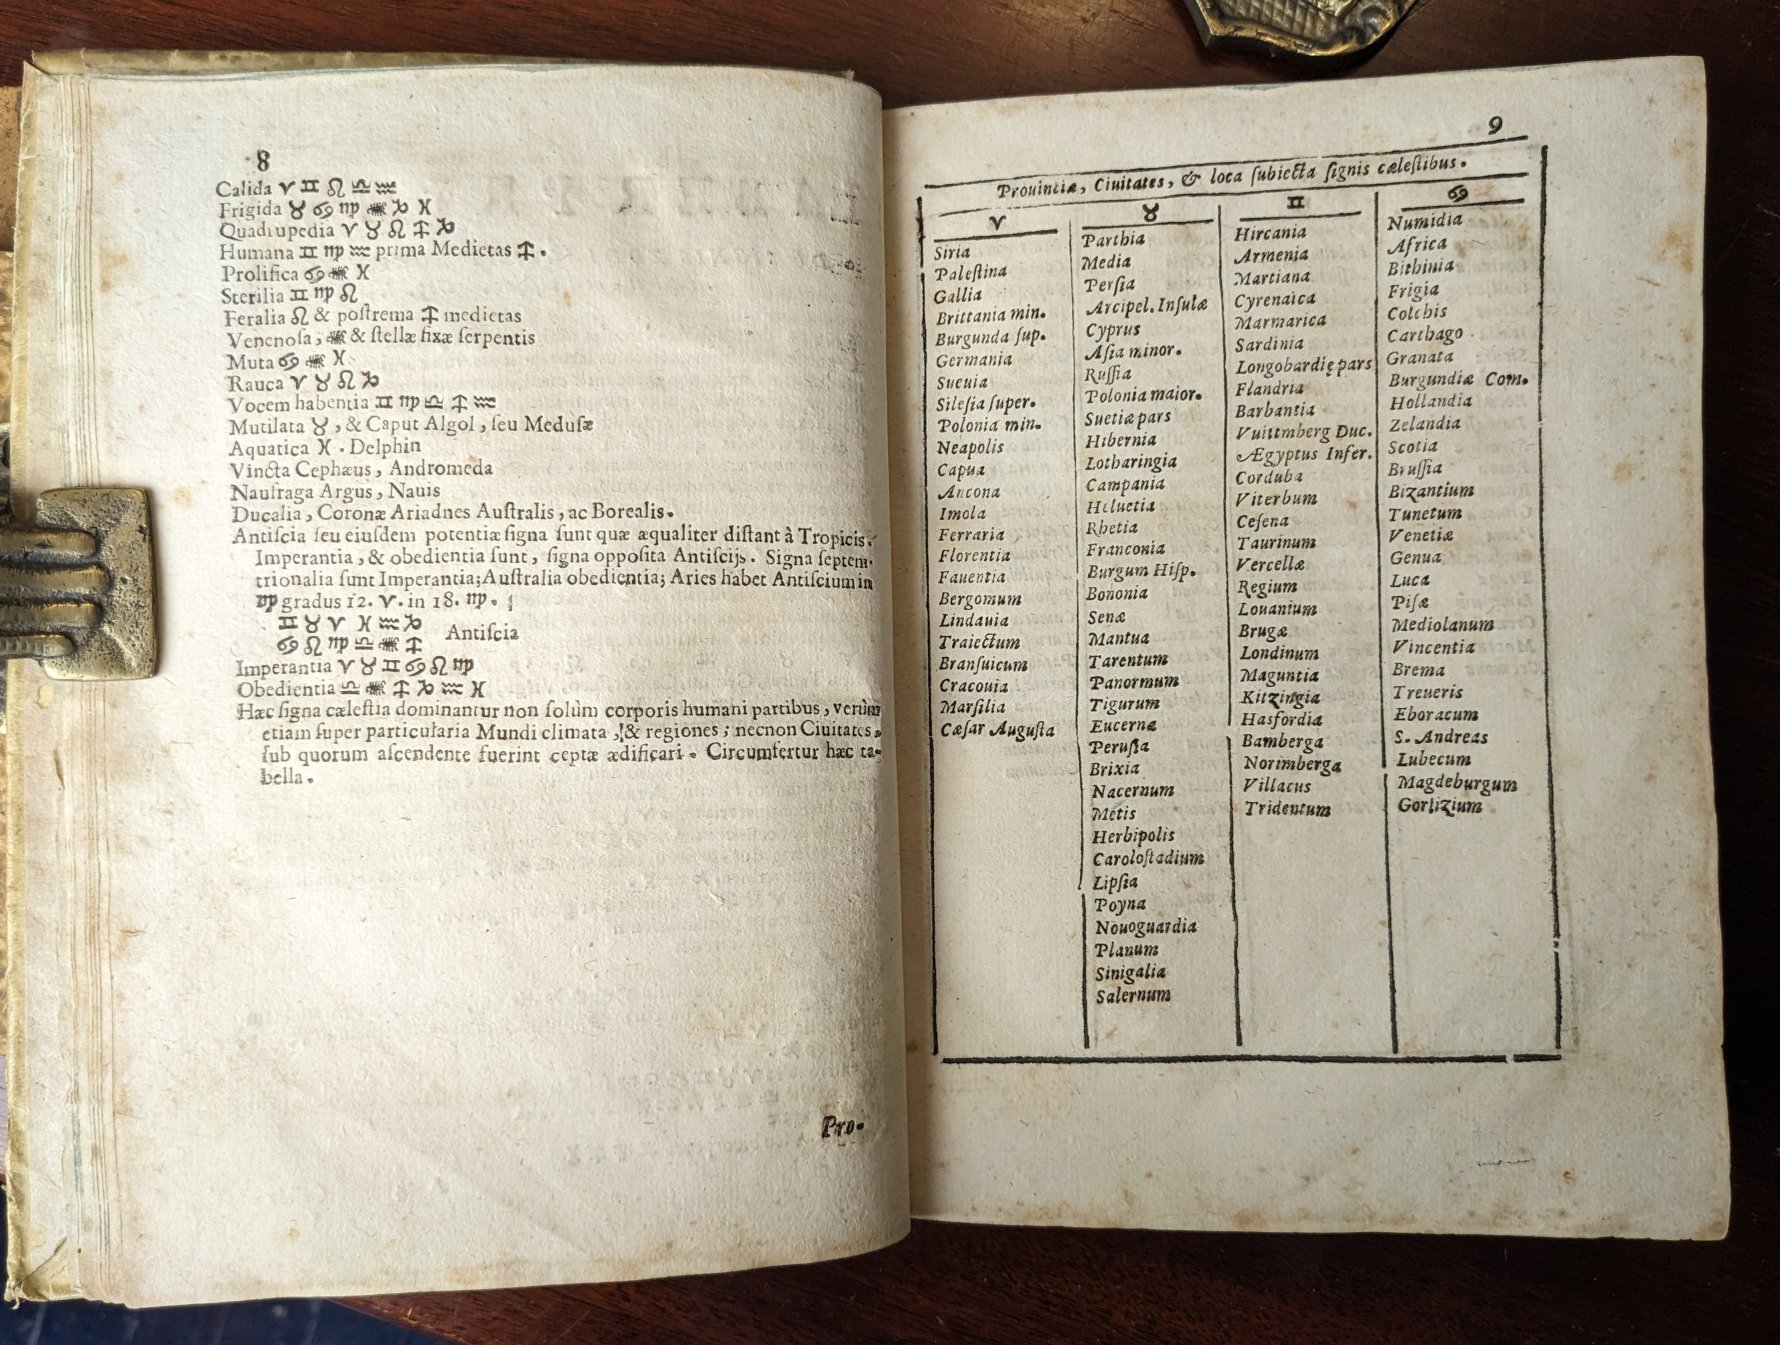 8
Calida ♈ ♊ ♌ ♎ ♒
Frigida ♉ ♋ ♍ ♏ ♑ ♓
Quadrupedia ♈ ♉ ♌ ♐ ♑
Humana ♊ ♍ ♒ prima Medietas ♐.
Prolifica ♋ ♏ ♓
Sterilia ♊ ♍ ♌
Feralia ♌ & postrema ♐ medietas
Venenosa, ♏ & stellæ fixæ serpentis
Muta ♋ ♏ ♓
Rauca ♈ ♉ ♌ ♑
Vocem habentia ♊ ♍ ♎ ♐ ♒
Mutilata ♉, & Caput Algol, seu Medusæ
Aquatica ♓. Delphin
Vincta Cephæus, Andromeda
Naufraga Argus, Nauis
Ducalia, Coronæ Ariadnes Australis, ac Borealis.
Antiscia seu eiusdem potentiæ signa sunt quæ æqualiter distant à Tropicis.
Imperantia, & obedientia sunt, signa opposita Antiscijs. Signa septem-
trionalia sunt Imperantia; Australia obedientia; Aries habet Antiscium in
♍ gradus 12. ♈. in 18. ♍.
♊ ♉ ♈ ♓ ♒ ♑
Antiscia
♋ ♌ ♍ ♎ ♏ ♐
Imperantia ♈ ♉ ♊ ♋ ♌ ♍
Obedientia ♎ ♏ ♐ ♑ ♒ ♓
Hæc signa cælestia dominantur non solùm corporis humani partibus, verùm
etiam super particularia Mundi climata, & regiones; necnon Ciuitates,
sub quorum ascendente fuerint ceptæ ædificari. Circumfertur hæc ta-
bella.
Pro-
9
Prouinciæ, Ciuitates, & loca subiecta signis cælestibus.
♈
Siria
Palestina
Gallia
Brittania min.
Burgunda sup.
Germania
Sueuia
Silesia super.
Polonia min.
Neapolis
Capua
Ancona
Imola
Ferraria
Florentia
Fauentia
Bergomum
Lindauia
Traiectum
Bransuicum
Cracouia
Marsilia
Cæsar Augusta
♉
Parthia
Media
Persia
Arcipel. Insulæ
Cyprus
Asia minor.
Russia
Polonia maior.
Suetiæ pars
Hibernia
Lotharingia
Campania
Heluetia
Rhetia
Franconia
Burgum Hisp.
Bononia
Senæ
Mantua
Tarentum
Panormum
Tigurum
Eucernæ
Perusia
Brixia
Nacernum
Metis
Herbipolis
Carolostadium
Lipsia
Poyna
Nouoguardia
Planum
Sinigalia
Salernum
♊
Hircania
Armenia
Martiana
Cyrenaica
Marmarica
Sardinia
Longobardię pars
Flandria
Barbantia
Vuittmberg Duc.
Ægyptus Infer.
Corduba
Viterbum
Cesena
Taurinum
Vercellæ
Regium
Louanium
Brugæ
Londinum
Maguntia
Kitzingia
Hasfordia
Bamberga
Norimberga
Villacus
Tridentum
♋
Numidia
Africa
Bithinia
Frigia
Colchis
Carthago
Granata
Burgundiæ Com.
Hollandia
Zelandia
Scotia
Brussia
Bizantium
Tunetum
Venetiæ
Genua
Luca
Pisæ
Mediolanum
Vincentia
Brema
Treueris
Eboracum
S. Andreas
Lubecum
Magdeburgum
Gorlizium